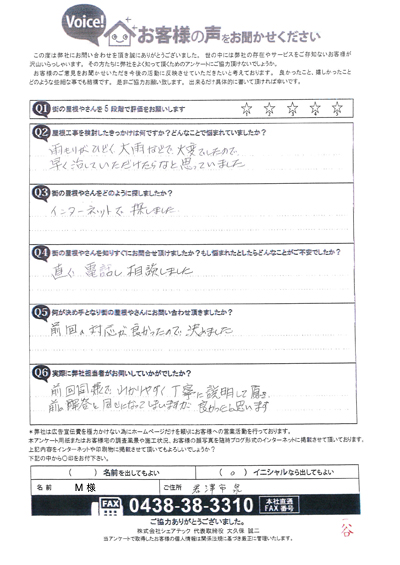 Voice!
お客様の声をお聞かせください
この度は弊社にお問い合わせを頂き誠にありがとうございました。世の中には弊社の存在やサービスをご存知ないお客様が
沢山いらっしゃいます。その方たちに弊社をよく知って頂くためのアンケートにご協力頂けないでしょうか。
お客様のご意見をお聞かせいただき今後の活動に反映させていただきたいと考えております。良かったこと、嬉しかったこと
どのような些細な事でも結構です。是非ご協力お願い致します。出来るだけ具体的に書いて頂ければ幸いです。
Q1 街の屋根やさんを5段階で評価をお願いします ☆ ☆ ☆ ☆ ☆
Q2 屋根工事を検討したきっかけは何ですか?どんなことで悩まれていましたか?
雨もりがひどく大雨などで大変でしたので
早く治していただけたらなと思っていました
Q3 街の屋根やさんをどのように探しましたか?
インターネットで探しました
Q4 街の屋根やさんを知りすぐにお問合せ頂けましたか?もし悩まれたとしたらどんなことがご不安でしたか?
直ぐ電話し相談しました
Q5 何が決め手となり街の屋根やさんにお問い合わせ頂きましたか?
前回の対応が良かったので決めました
Q6 実際に弊社担当者がお伺いしていかがでしたか?
前回同様でわかりやすく丁寧に説明して頂き
前の解答と同じになってしまいますが良かったと思います
*弊社は広告宣伝費を極力かけない為にホームページだけを頼りにお客様への営業活動を行っております。
*アンケート用紙またはお客様宅の調査風景や施工状況、お客様の顔写真を随時ブログ形式のインターネットに掲載させて頂いております。
上記内容をインターネットや印刷物に掲載させて頂いてもよろしいでしょうか?
下記の中から〇印をお付下さい。
( )名前を出してもよい ( o )イニシャルなら出してもよい
名前 M 様 ご住所 君津市
FAX 0438-38-3310 本社直通 FAX番号
ご協力ありがとうございました。
株式会社シェアテック 代表取締役 大久保 誠二
当アンケートで取得したお客様の個人情報は関係法規に基づき厳正に管理いたします。
谷